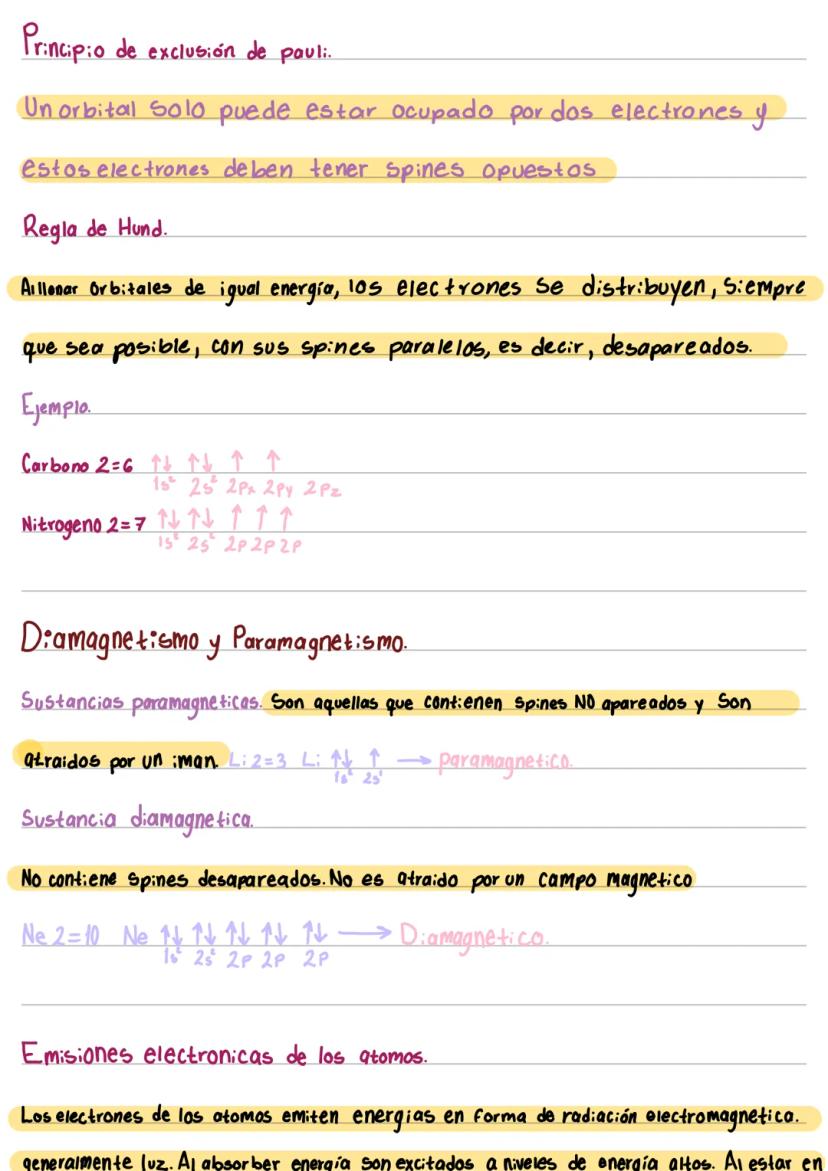 Principio de exclusión de pauli.
Un orbital solo puede estar ocupado por dos electrones y
estos electrones deben tener spines opuestos
Regla de Hund.
Al llenar orbitales de igual energía, los electrones se distribuyen, siempre
que sea posible, con sus spines paralelos, es decir, desapareados.
Ejemplo.
Carbono 2=6 ↑↓ ↑↓ ↑ ↑
1s² 2s² 2Px 2Py 2Pz
Nitrogeno 2=7 ↑↓ ↑↓ ↑ ↑ ↑
1s² 2s² 2P 2P 2P
Diamagnetismo y Paramagnetismo.
Sustancias paramagneticas. Son aquellas que contienen spines NO apareados y son
atraidos por un iman. Li 2=3 Li ↑↓ ↑ → paramagnetico.
1s² 2s¹
Sustancia diamagnetica.
No contiene spines desapareados. No es atraido por un campo magnetico
Ne 2=10 Ne ↑↓ ↑↓ ↑↓ ↑↓ ↑↓ → Diamagnetico.
1s² 2s² 2P 2P 2P
Emisiones electronicas de los atomos.
Los electrones de los atomos emiten energias en forma de radiación electromagnetica.
generalmente luz. Al absorber energía son excitados a niveles de energía altos. Al estar en